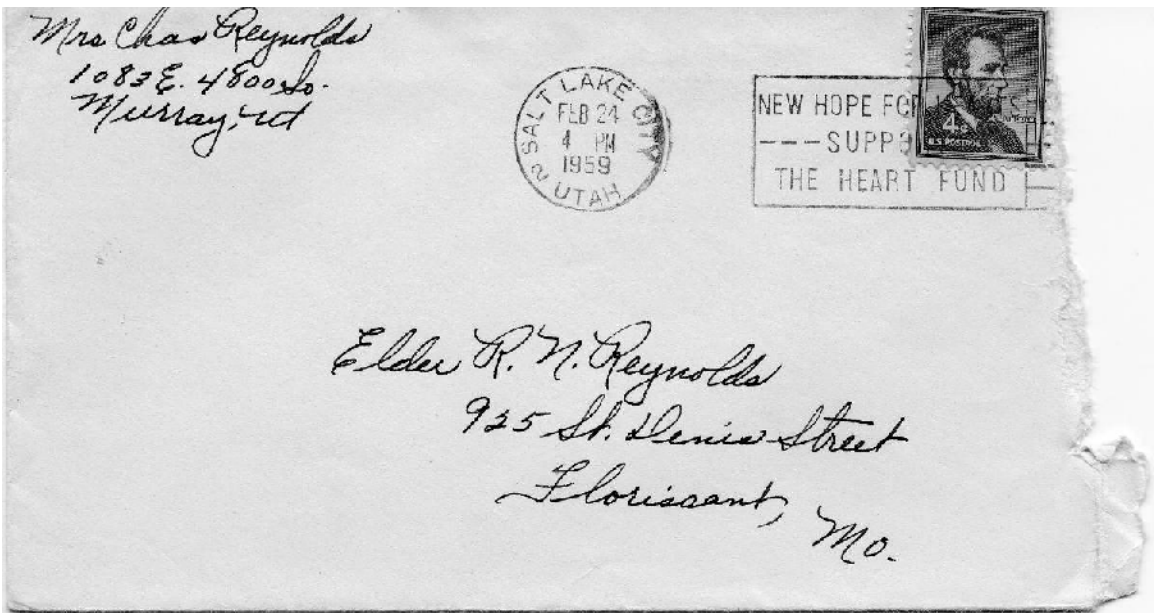 Mrs Chas Reynolds
1083 E. 4800 So.
Murray, Ut
SALT LAKE CITY
FEB 24
4 PM
1959
2 UTAH
NEW HOPE FOR
--- SUPPO
THE HEART FUND
4¢
U.S. POSTAGE
Elder R. N. Reynolds
925 St. Denis Street
Florissant, Mo.